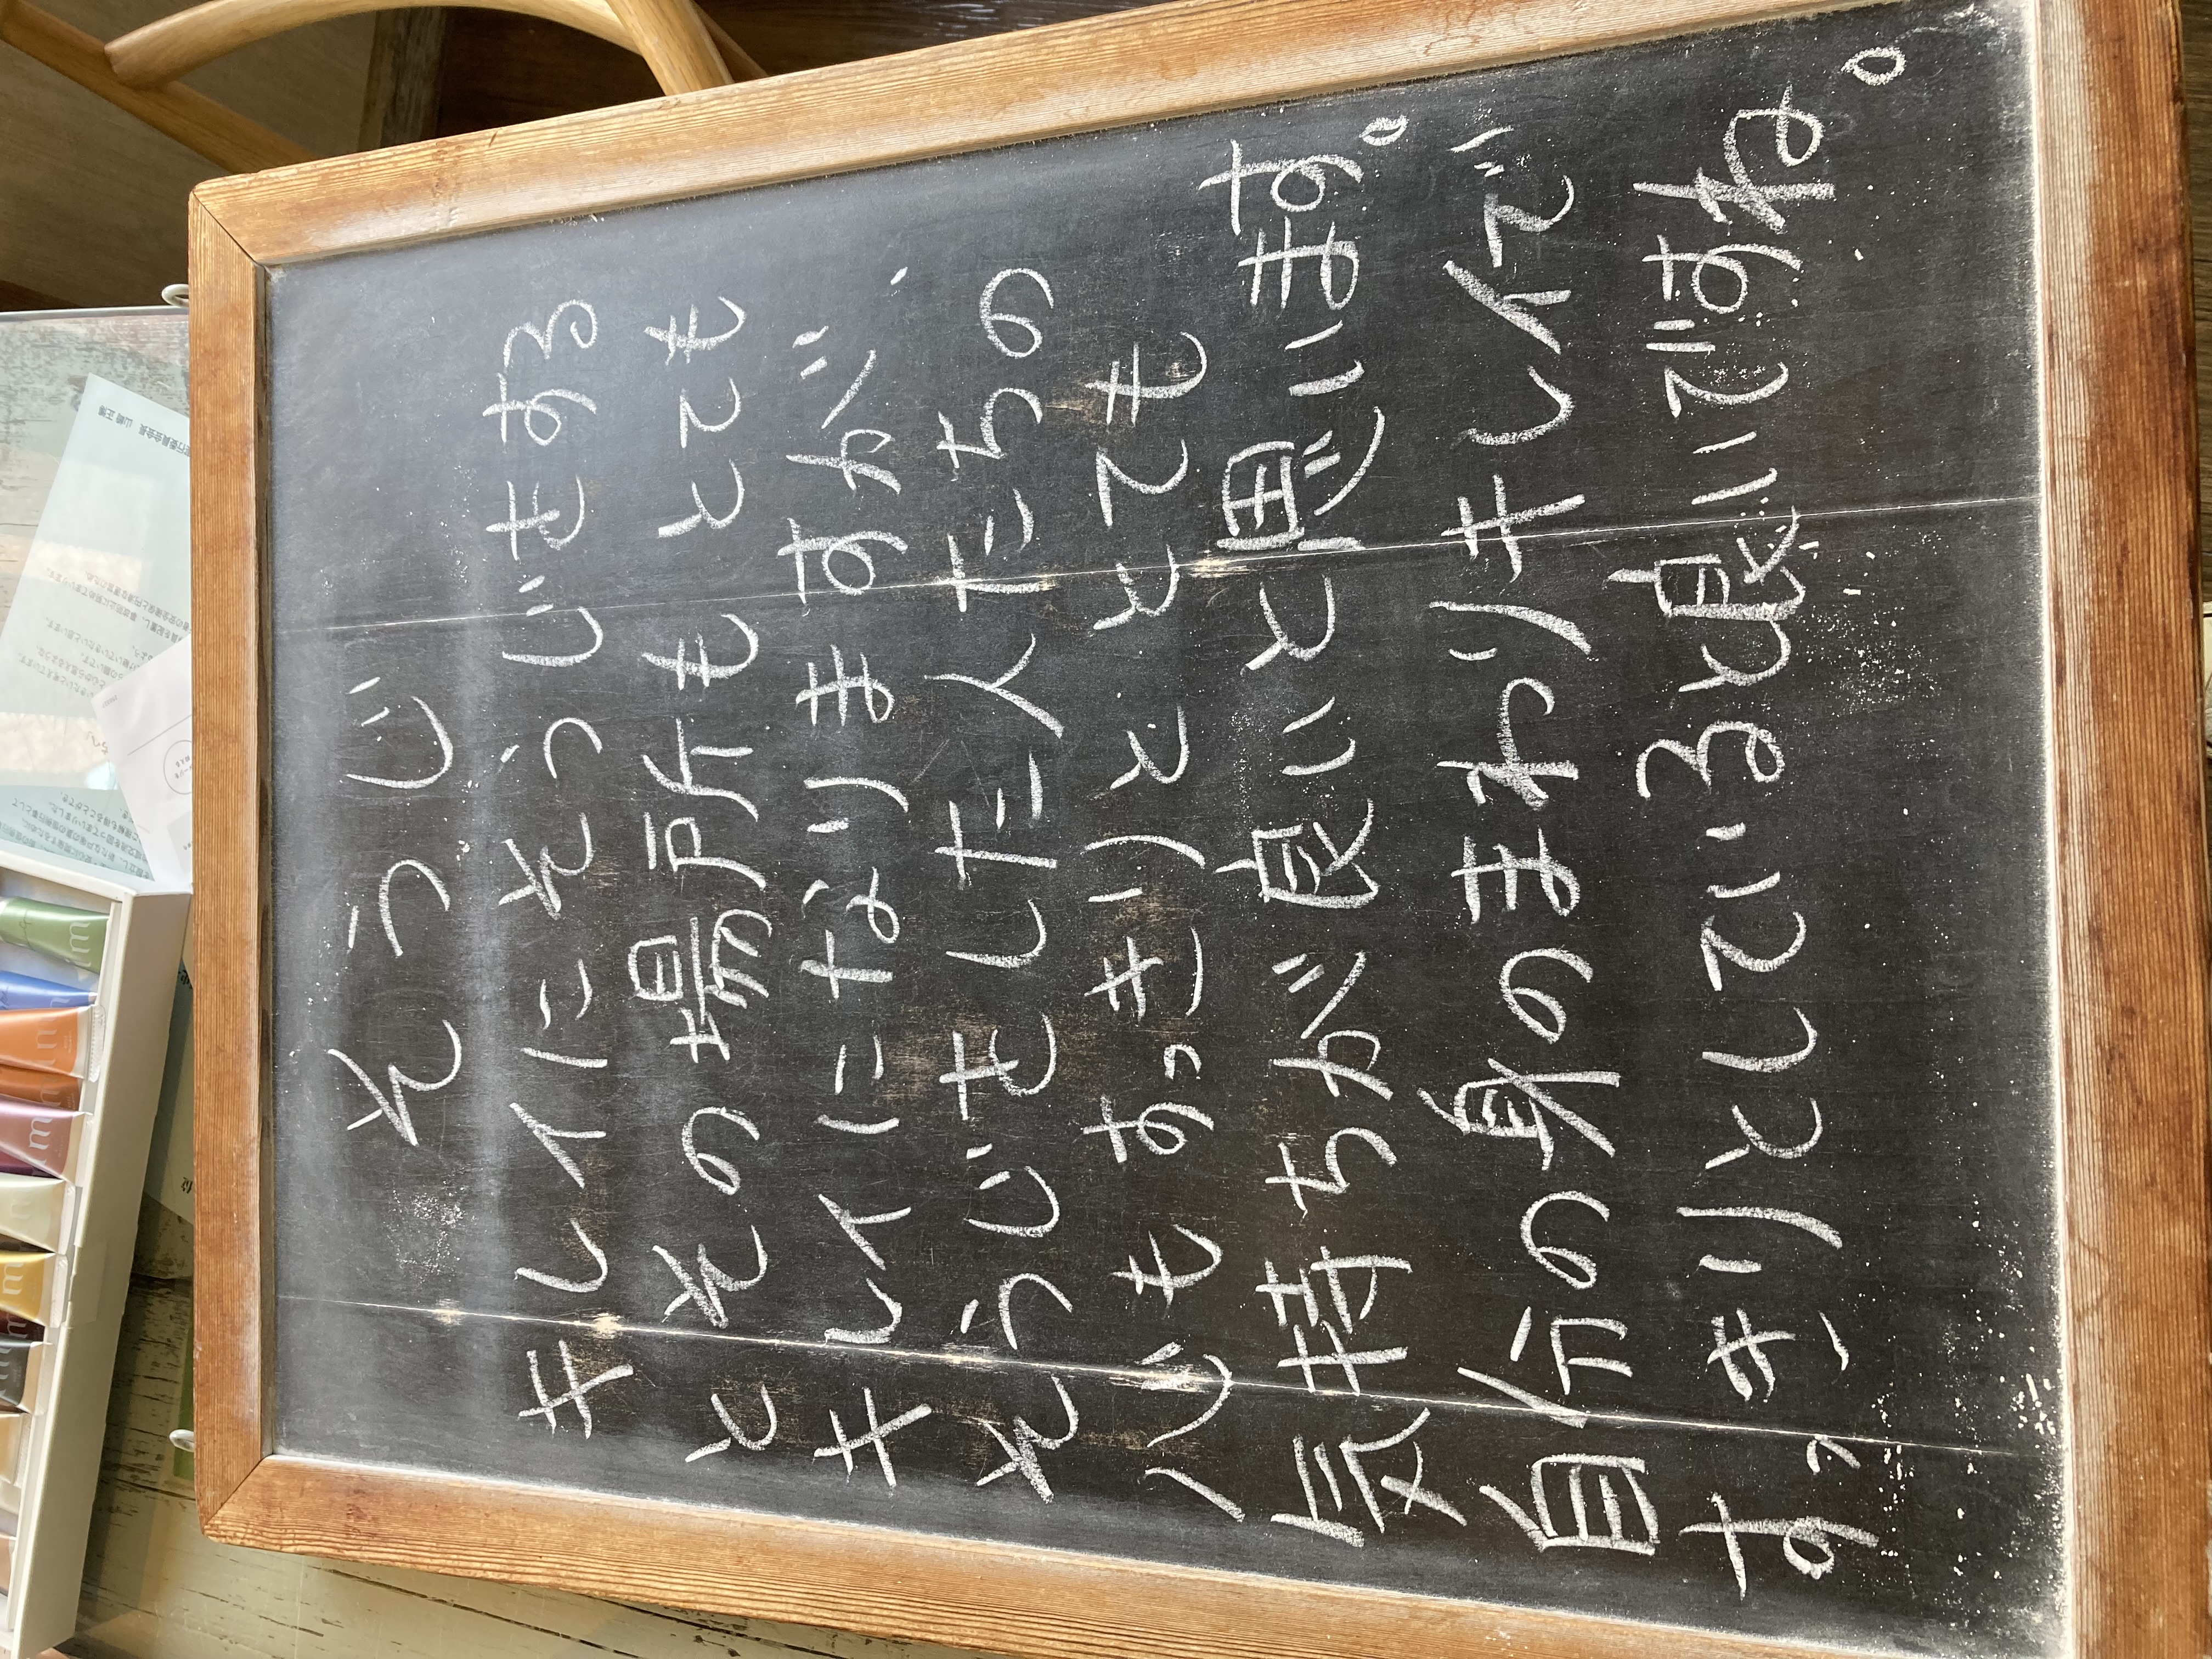 そうじ
キレイにそうじをする
と その場所も とても
キレイになりますが、
そうじをした人たちの
心も すっきりと とても
気持ちが良いと思います。
自分の身のまわりキレイで
すっキリとしていると良いですね。